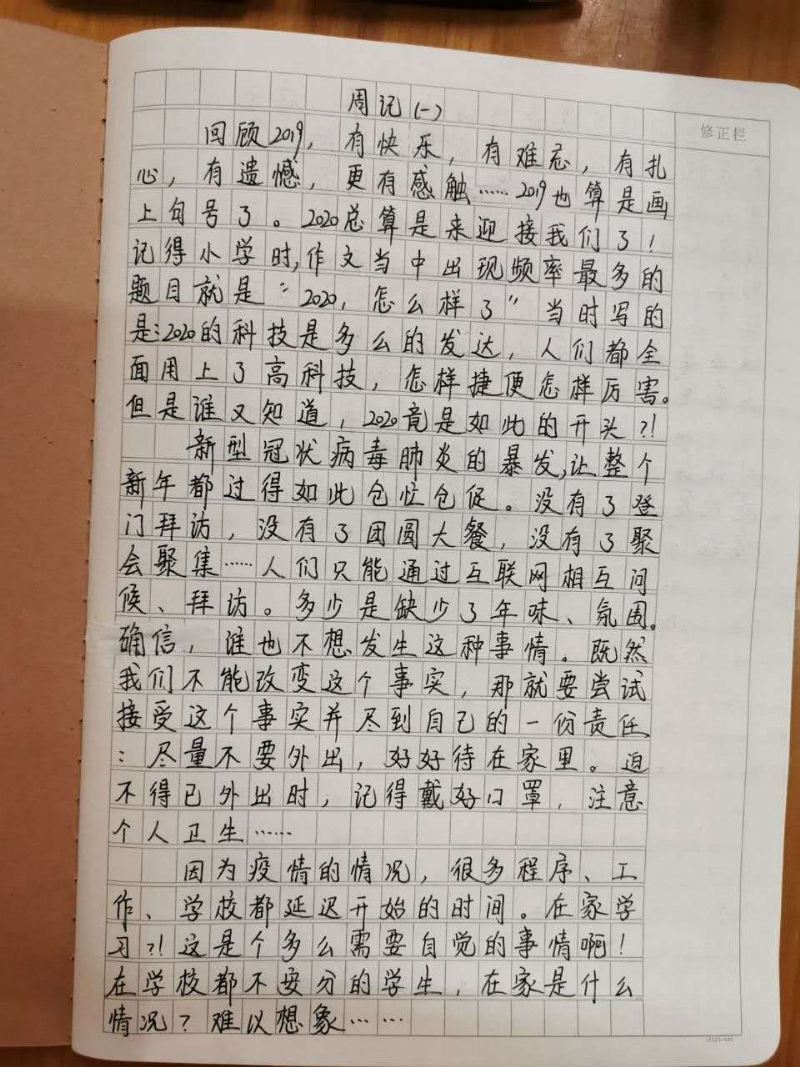 周记(一)
修正栏
回顾2019，有快乐，有难忘，有扎
心，有遗憾，更有感触……2019也算是画
上句号了。2020总算是来迎接我们了！
记得小学时，作文当中出现频率最多的
题目就是“2020，怎么样了”当时写的
是：2020的科技是多么的发达，人们都全
面用上了高科技，怎样捷便怎样厉害。
但是谁又知道，2020竟是如此的开头？！
新型冠状病毒肺炎的暴发，让整个
新年都过得如此仓忙仓促。没有了登
门拜访，没有了团圆大餐，没有了聚
会聚集……人们只能通过互联网相互问
候、拜访。多少是缺少了年味、氛围。
确信，谁也不想发生这种事情。既然
我们不能改变这个事实，那就要尝试
接受这个事实并尽到自己的一份责任
：尽量不要外出，好好待在家里。迫
不得已外出时，记得戴好口罩，注意
个人卫生……
因为疫情的情况，很多程序、工
作、学校都延迟开始的时间。在家学
习？！这是个多么需要自觉的事情啊！
在学校都不安分的学生，在家是什么
情况？难以想象……